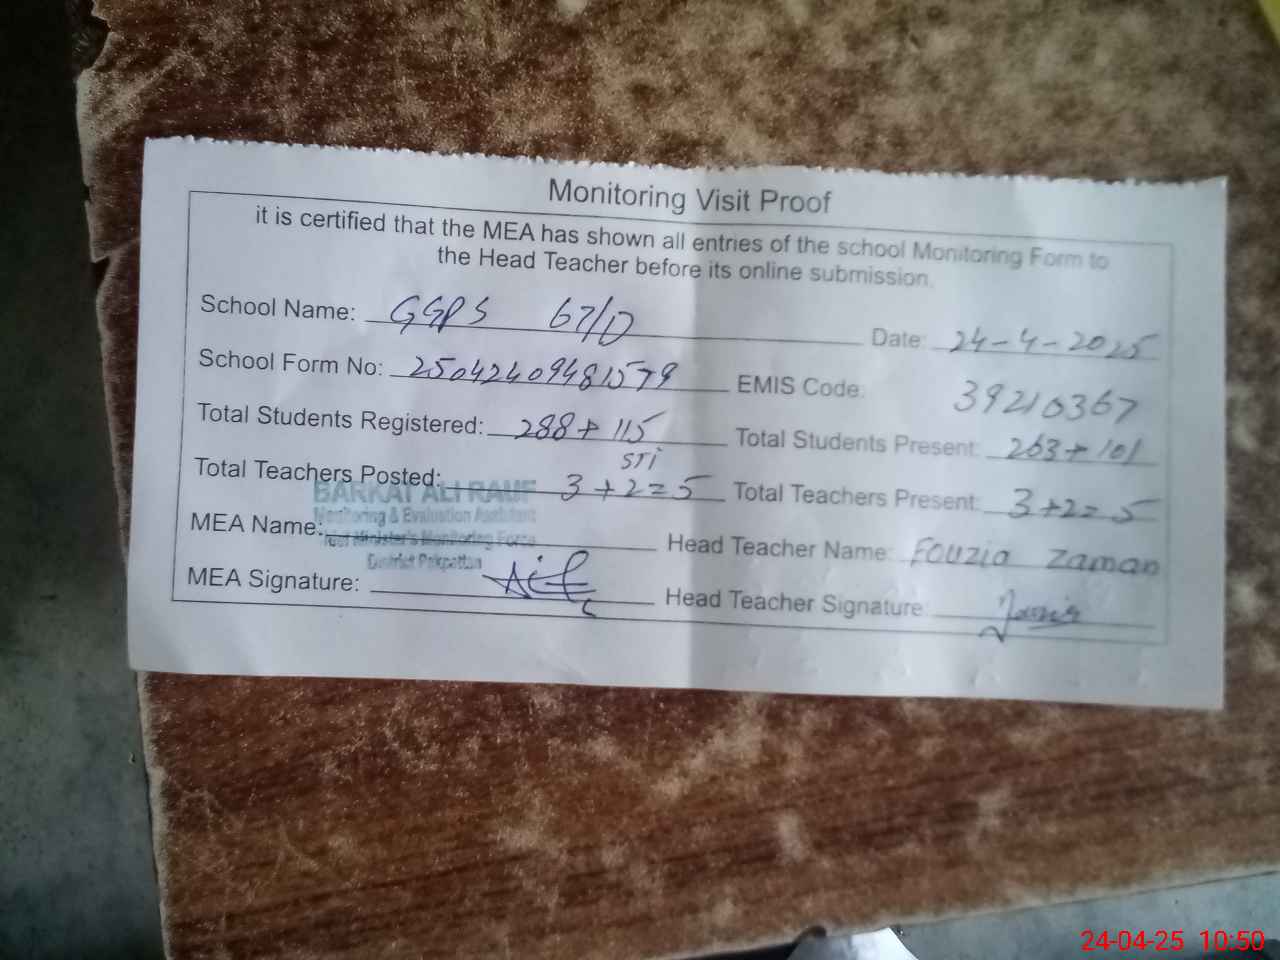 Monitoring Visit Proof
it is certified that the MEA has shown all entries of the school Monitoring Form to
the Head Teacher before its online submission.
School Name: GGPS 67/D Date: 24-4-2025
School Form No: 25042409481579 EMIS Code: 39210367
Total Students Registered: 288 + 115 Total Students Present: 263 + 101
STI
Total Teachers Posted: 3 + 2 = 5 Total Teachers Present: 3 + 2 = 5
BARKAT ALI RAUF
Monitoring & Evaluation Assistant
MEA Name: Chief Minister's Monitoring Force Head Teacher Name: Fouzia Zaman
District Pakpattan
MEA Signature: Head Teacher Signature
24-04-25 10:50